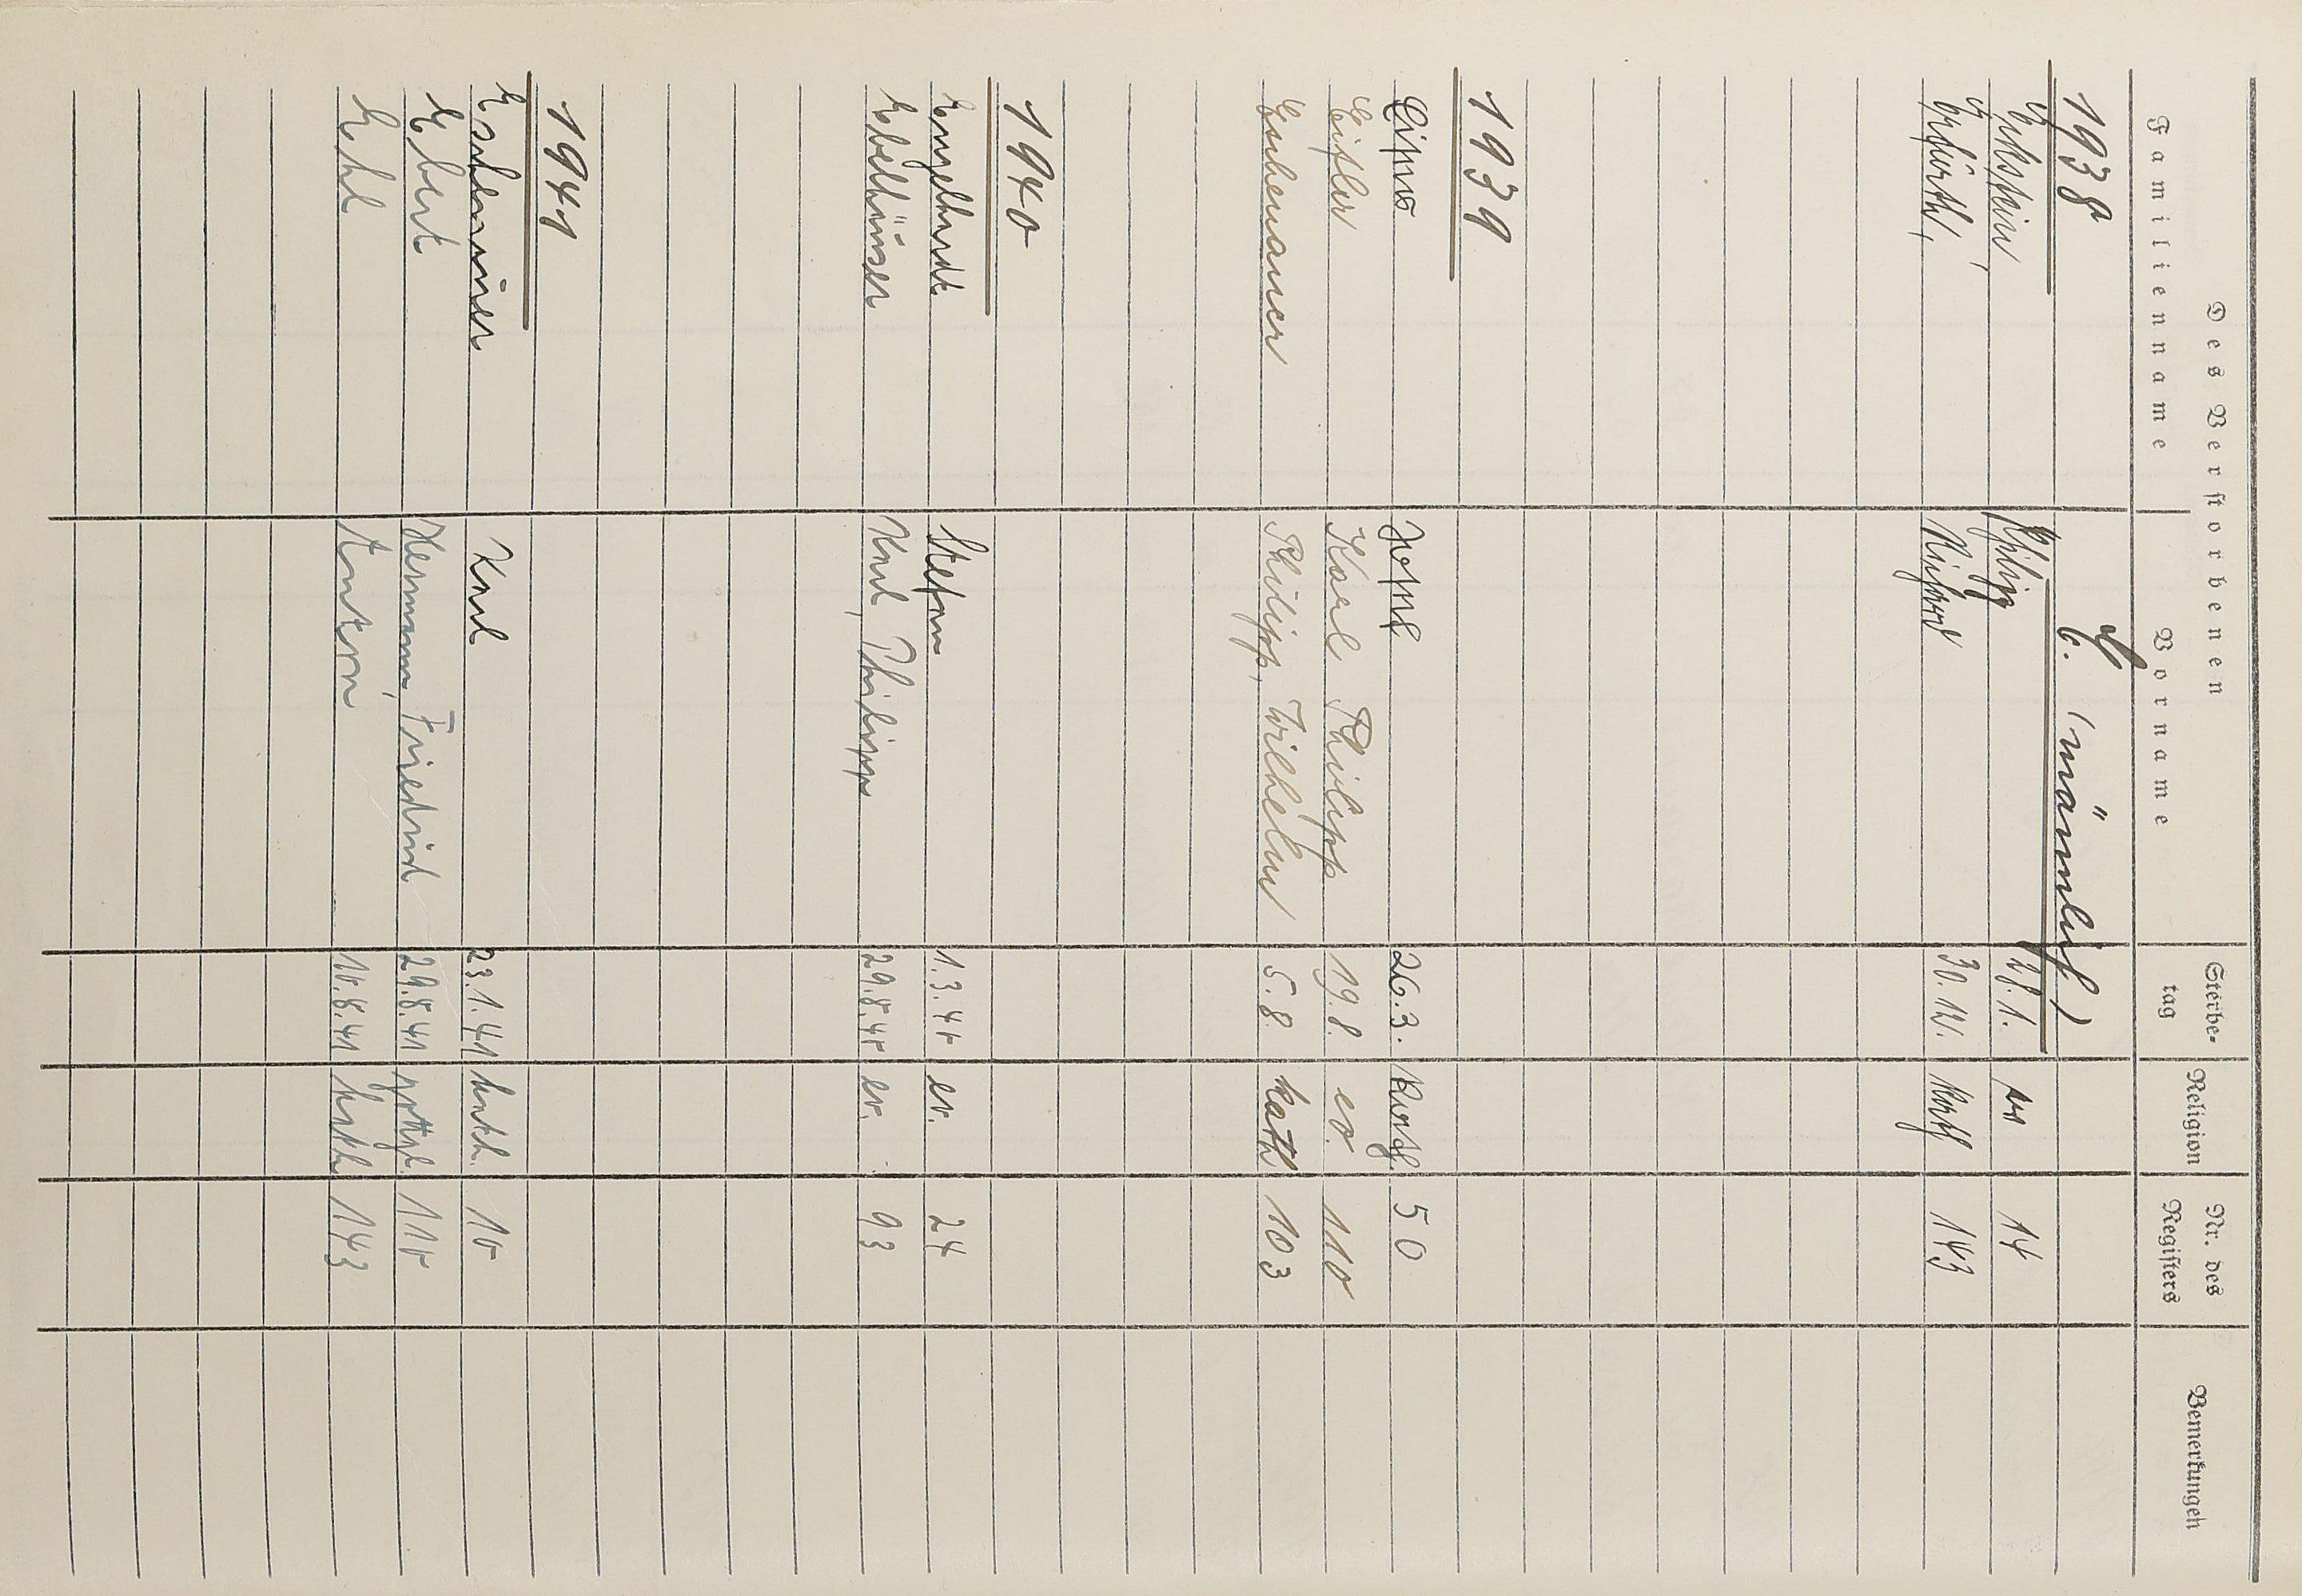 Des Verstorbenen
Sterbetag
Religion
Nr. des Registers
Bemerkungen
Familienname Vorname
E. (männlich)
1938
Eckstein, Philipp 27.1. ev 14
Erfurth, Richard 30.12. kath 143
1939
Josef 26.3. kath. 50
Eifler Karl Philipp 19.8. ev. 110
Eschenauer Philipp, Wilhelm 5.8. kath 103
1940
Engelhardt Stefan 1.3.40 ev. 24
Ebelhäuser Karl, Philipp 29.8.40 ev. 93
1941
Karl 23.1.41 kath. 10
Ebert Hermann, Friedrich 29.8.41 gottgl. 110
Ehl Anton 10.8.41 kath 143